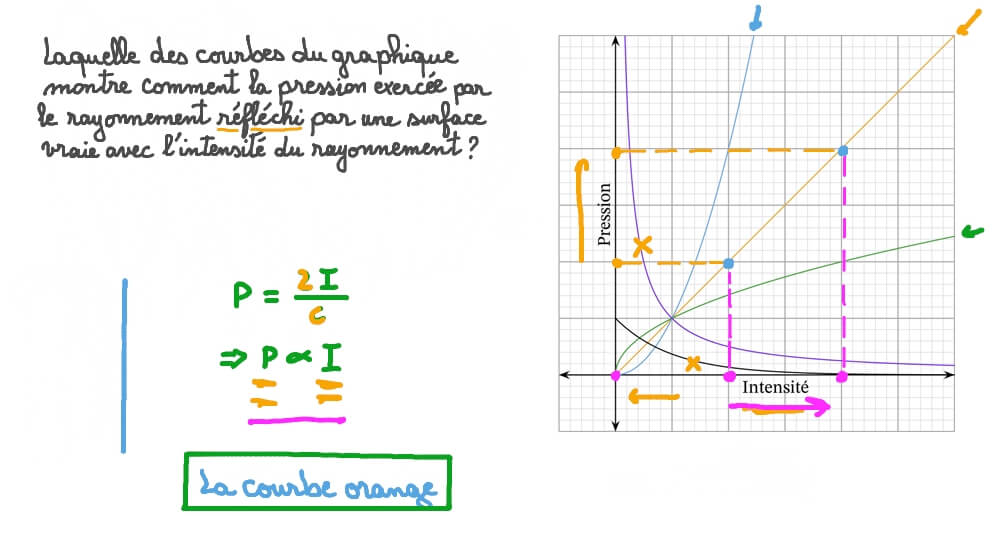 Laquelle des courbes du graphique
montre comment la pression exercée par
le rayonnement réfléchi par une surface
vraie avec l'intensité du rayonnement ?
P = 2I / c
⇒ P ∝ I
La courbe orange
Pression
Intensité